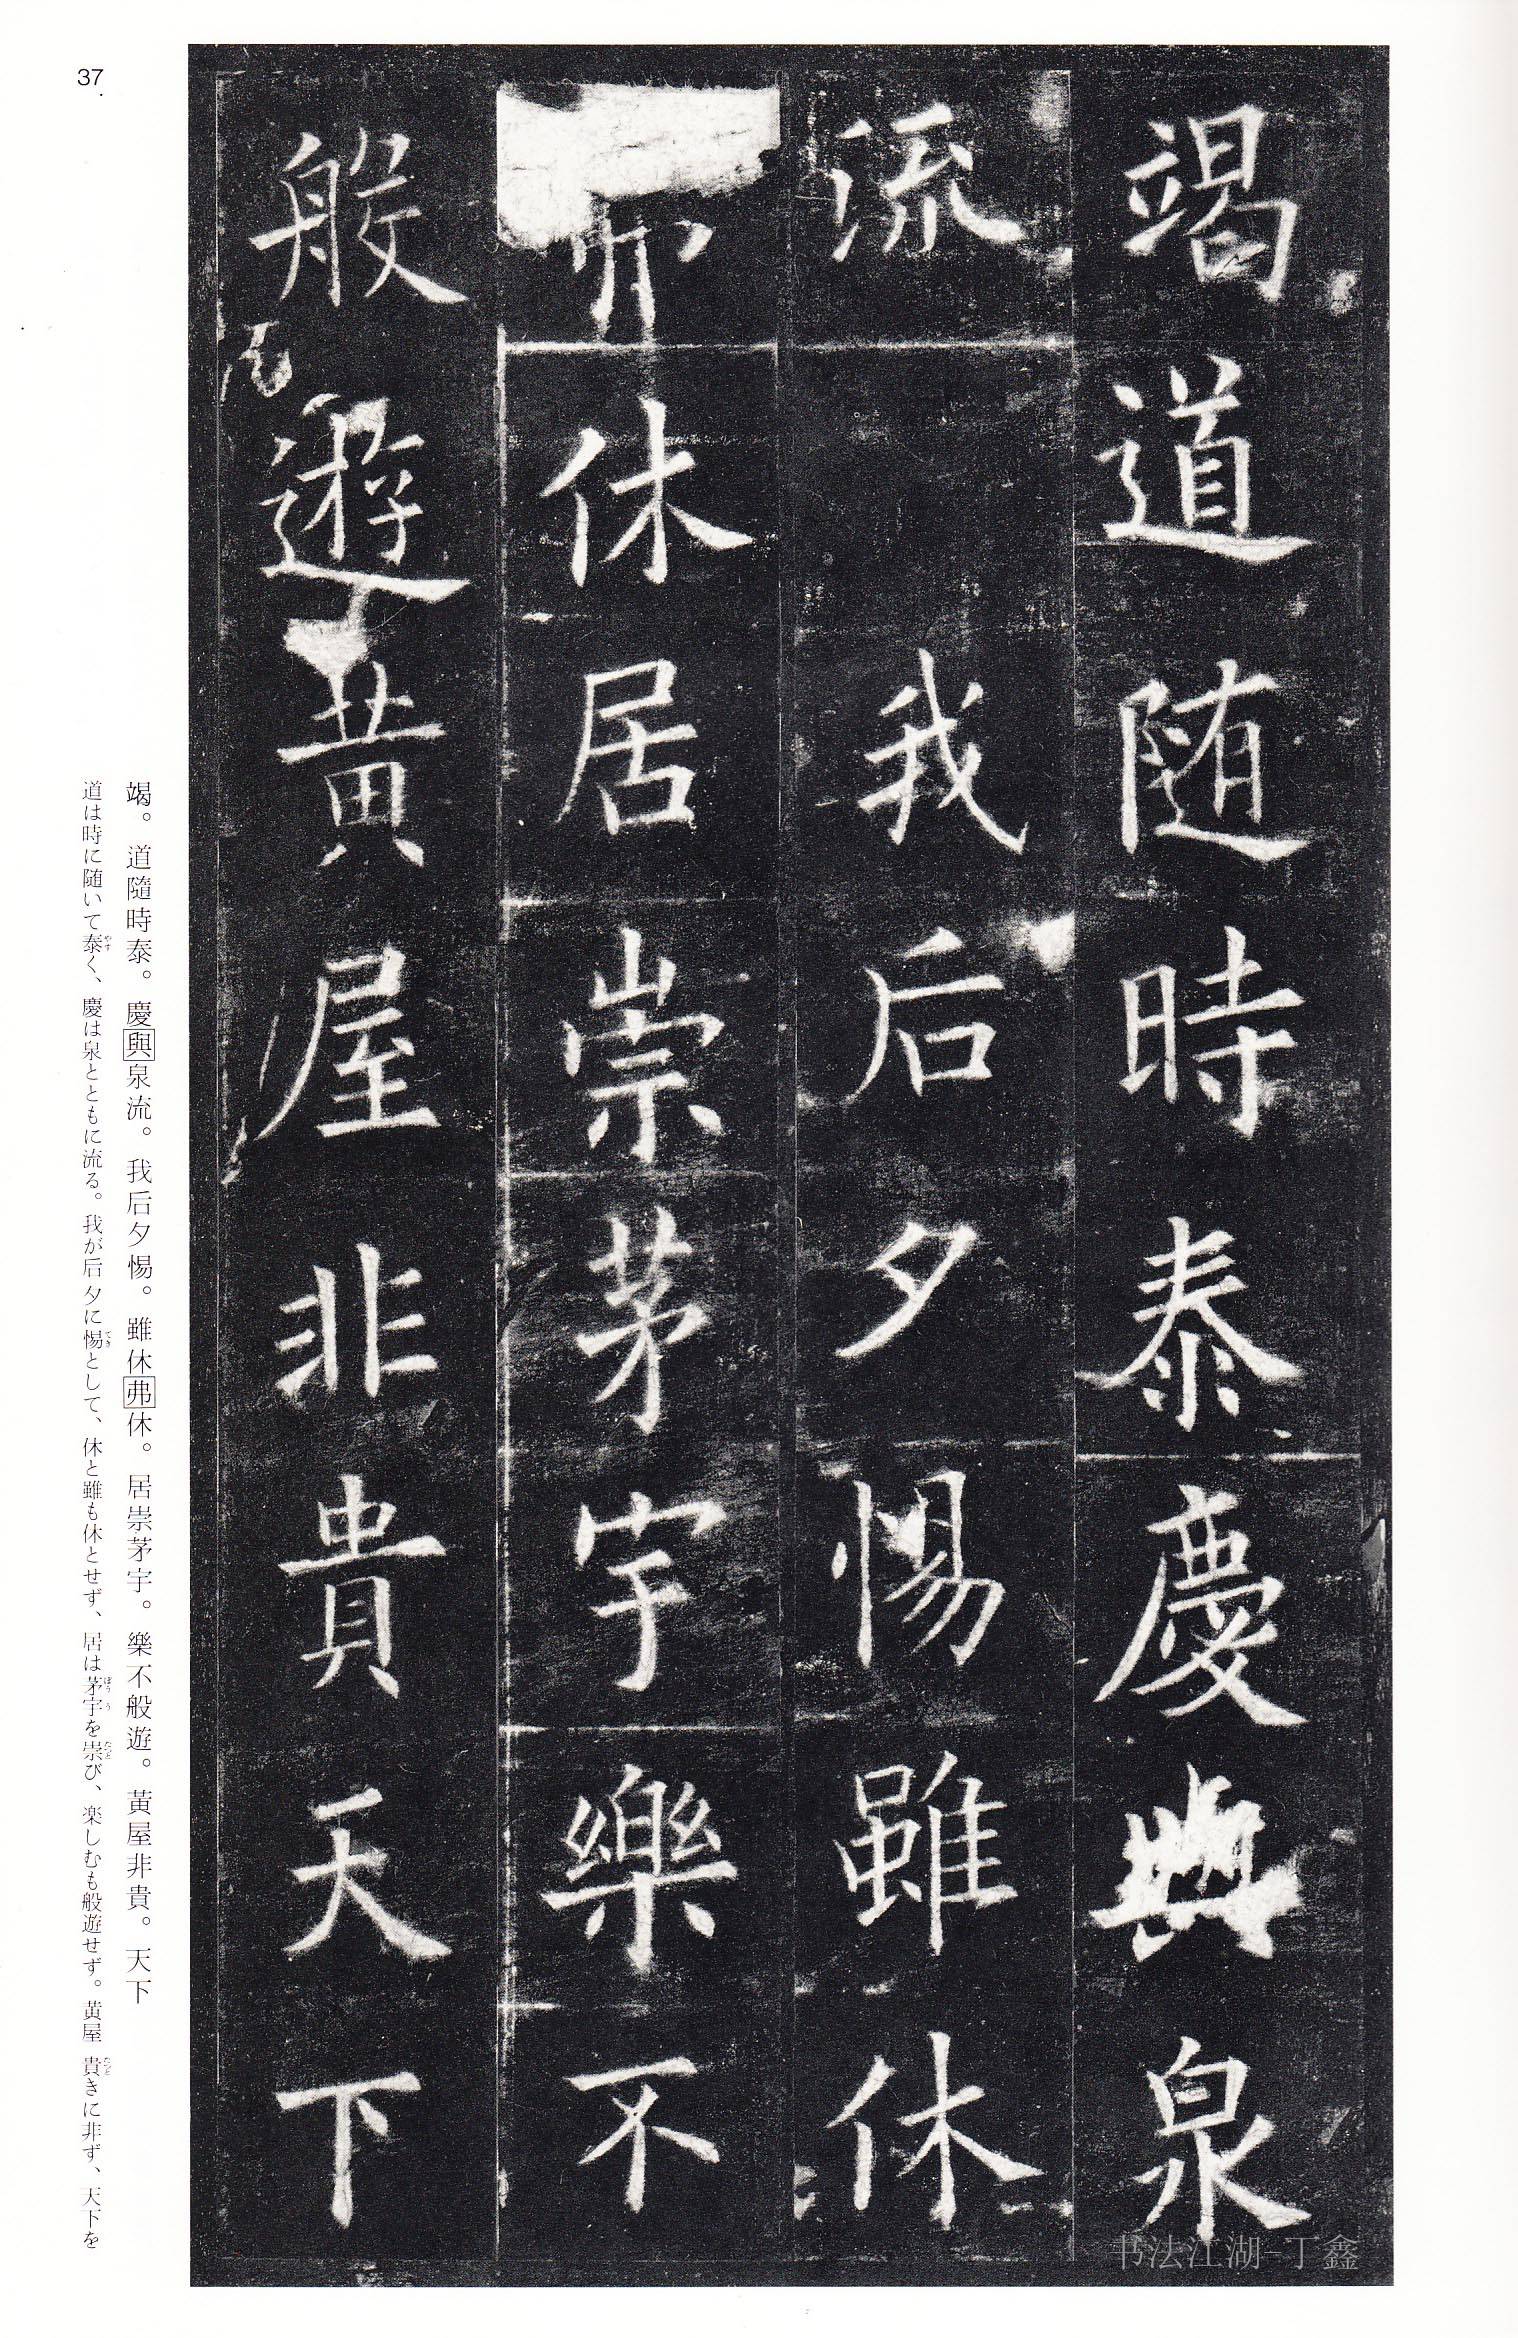 竭道随時泰慶與泉
流我后夕惕雖休
弗休居崇茅宇樂不
般遊黄屋非貴天下
竭。道隨時泰。慶與泉流。我后夕惕。雖休弗休。居崇茅宇。樂不般遊。黃屋非貴。天下
道は時に随いて泰く、慶は泉とともに流る。我が后夕に惕として、休と雖も休とせず、居は茅宇を崇び、楽しむも般遊せず。黄屋貴きに非ず、天下を
37
书法江湖-丁鑫